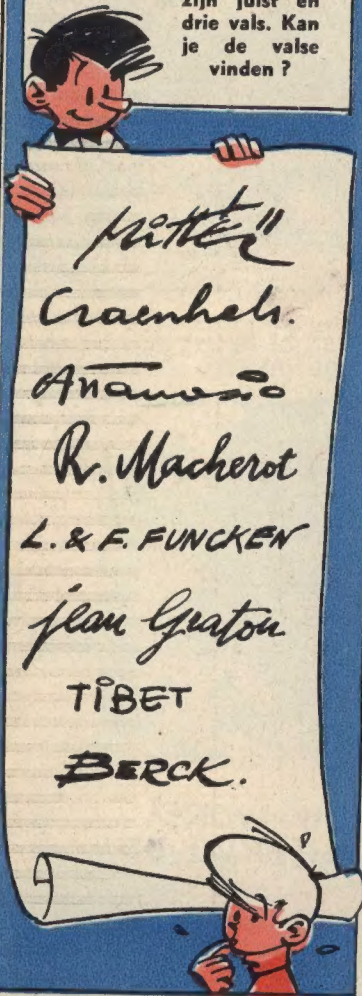 zijn juist en
drie vals. Kan
je de valse
vinden ?
Mittéï
Craenhals.
Attanasio
R. Macherot
L. & F. FUNCKEN
jean Graton
TIBET
BERCK.